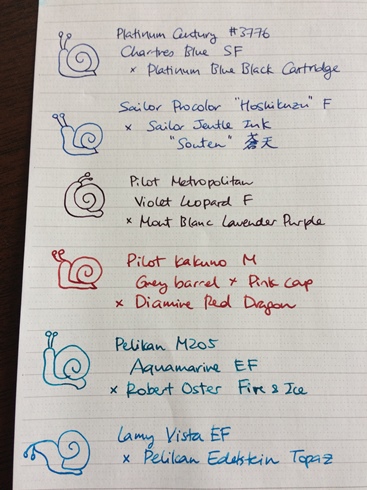 Platinum Century #3776
Chartres Blue SF
× Platinum Blue Black Cartridge
Sailor Procolor "Hoshikuzu" F
× Sailor Jentle Ink
"Souten" 蒼天
Pilot Metropolitan
Violet Leopard F
× Mont Blanc Lavender Purple
Pilot Kakuno M
Grey barrel × Pink cap
× Diamine Red Dragon
Pelikan M205
Aquamarine EF
× Robert Oster Fire & Ice
Lamy Vista EF
× Pelikan Edelstein Topaz